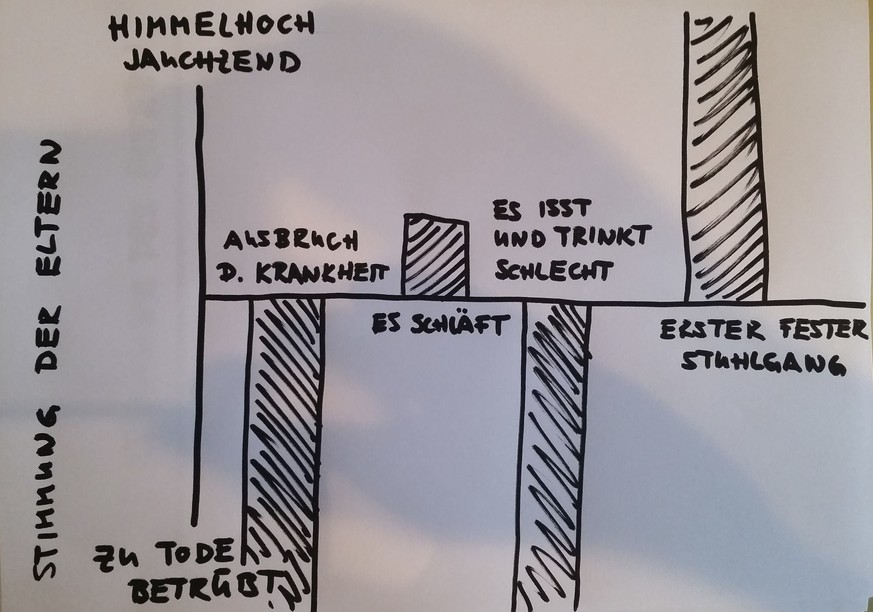 HIMMELHOCH
JAUCHZEND
STIMMUNG DER ELTERN
AUSBRUCH
D. KRANKHEIT
ES ISST
UND TRINKT
SCHLECHT
ES SCHLÄFT
ERSTER FESTER
STUHLGANG
ZU TODE
BETRÜBT